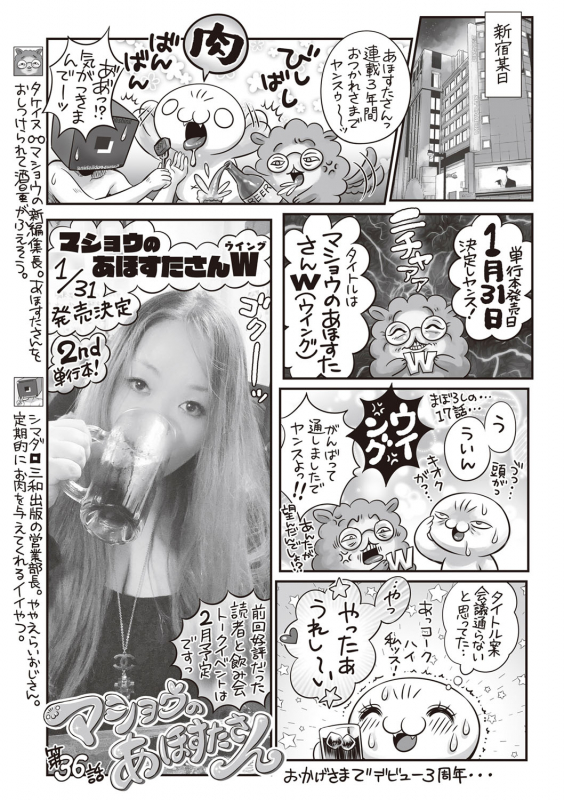 新宿某日
あほすたさんっ
連載3年間
おつかれさまで
ヤンスゥ〜〜ッ
びしばし
肉
ばんばん
ああっ!?
気がつきま
んでーッ
BEER
タケイヌ∞マショウの新編集長。あほすたさんを
おしつけられて酒量がふえそう。
単行本発売日
1月31日
決定しヤンえ!
ニチャアア
タイトルは
マショウのあほすた
さんW(ウイング)
W
う
ういん
まぼろしの…
17話…
ゔっ…
頭がっ
キオク
がっ…
ウイング
がんばって
通しましたで
ヤンスよっ!!
あんたが
望んだんでしょ!?
W
タイトル案
会議通らない
と思ってた…
あっヨーク
ハイ
私ッス!
…やっ
やったぁ
うれし〜い
おかげさまでデビュー3周年・・・
マショウの
あほすたさんW
ウイング
1/31
発売決定
2nd
単行本!
ゴクーッ
前回好評だった
読者と飲み会
トークイベントは
2月予定
ですっ
シマダ 三和出版の営業部長。ややえらいおじさん。
定期的にお肉を与えてくれるイイやつ。
マショウの
あほすたさん
第36話